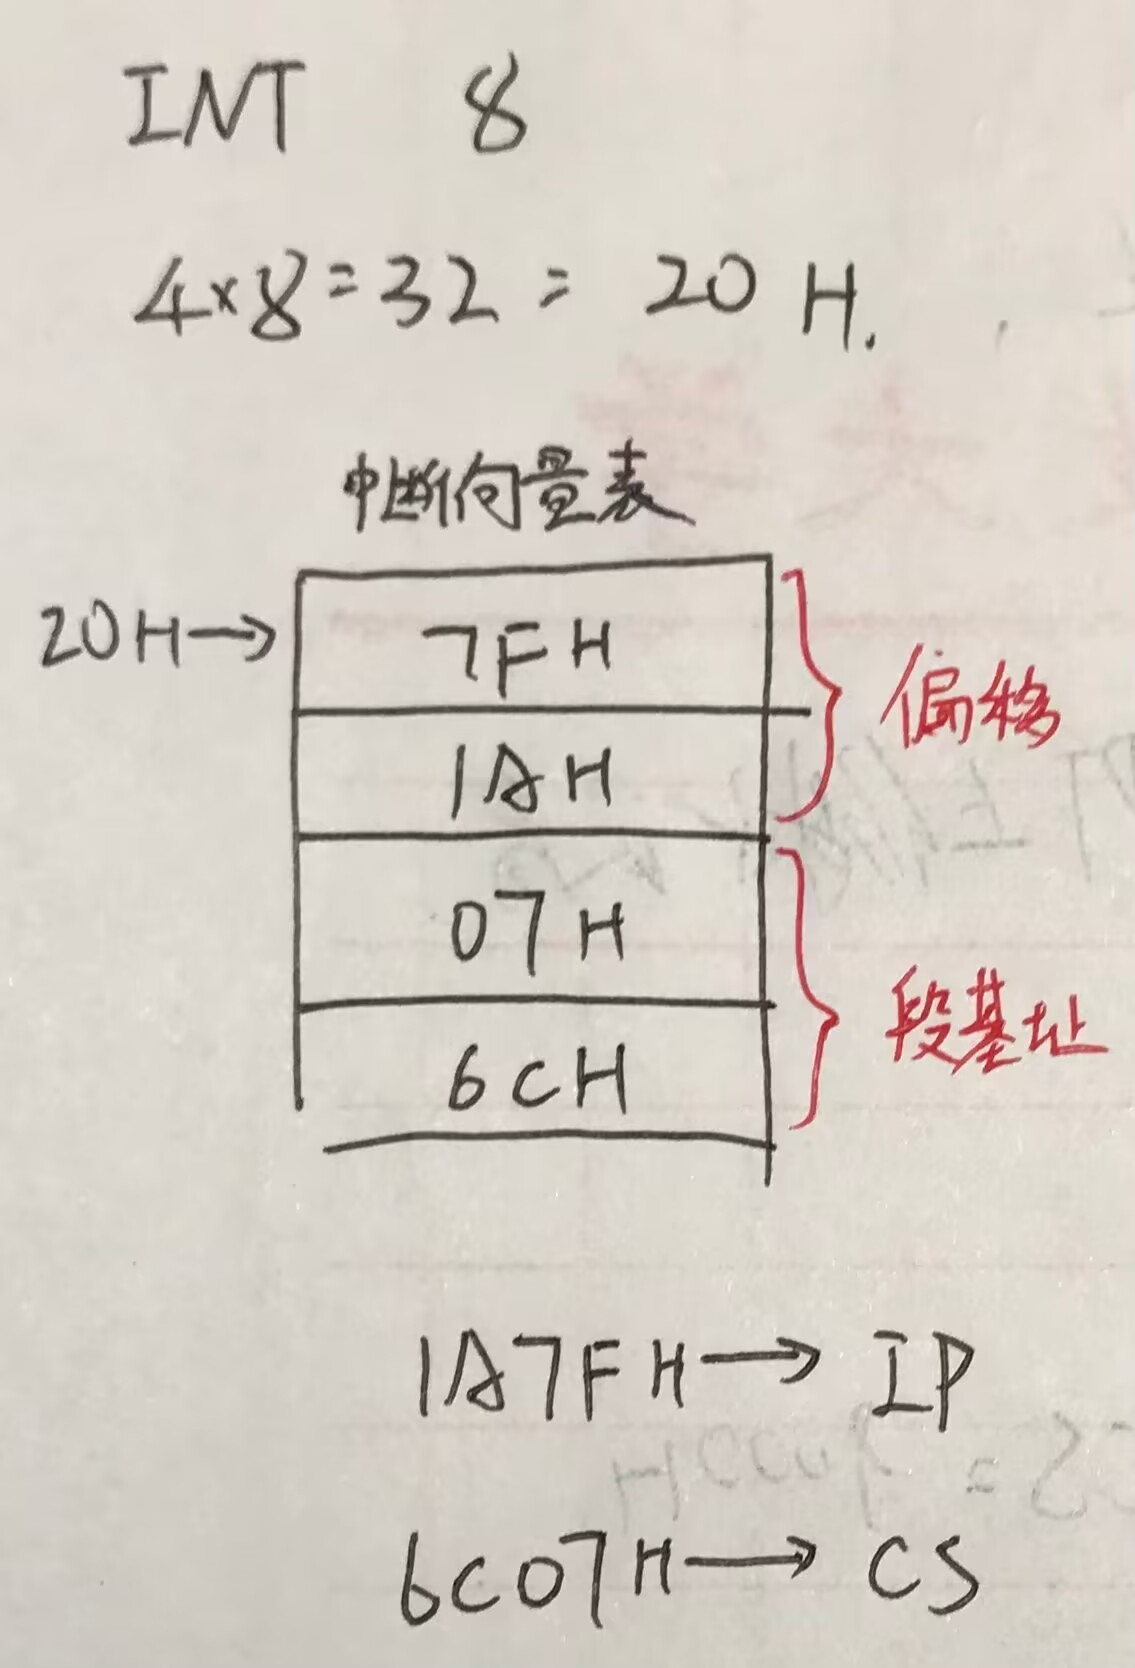 INT 8
4×8=32= 20 H.
中断向量表
20H→ 7FH
1AH
偏移
07H
段基址
6CH
1A7FH→ IP
6C07H→ CS